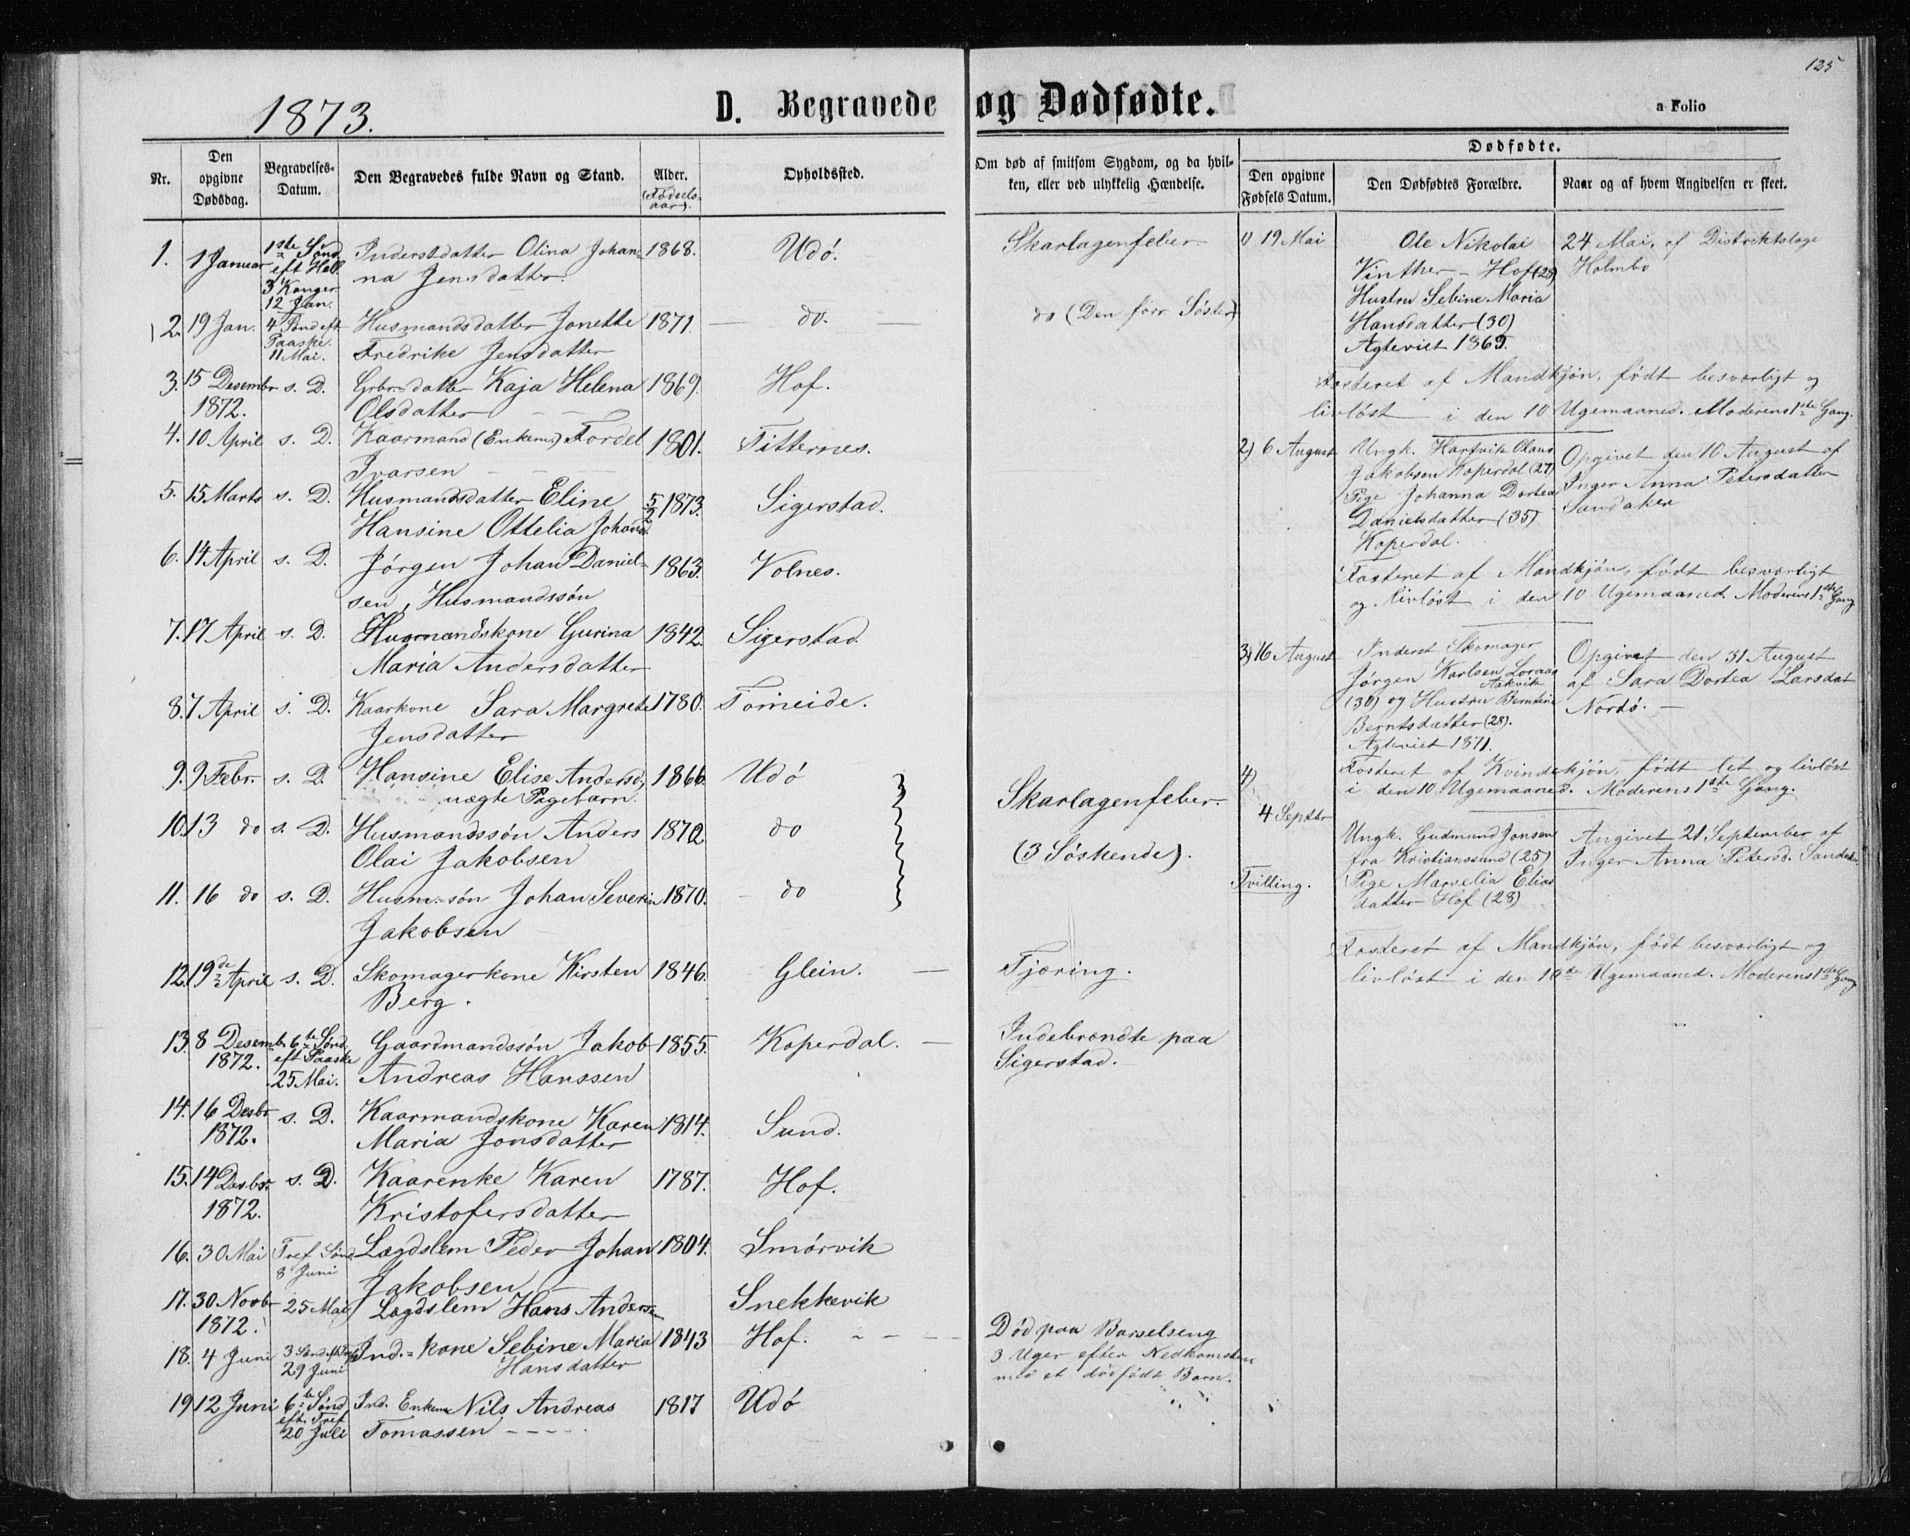 125
1873.
D. Begravede og Dødfødte.
a Folio
Nr.
Den opgivne Dødsdag.
Begravelses-Datum.
Den Begravedes fulde Navn og Stand.
Alder. (Fødselsaar).
Opholdssted.
Om død af smitsom Sygdom, og da hvil-
ken, eller ved ulykkelig Hændelse.
Dødfødte.
Den opgivne Fødsels Datum.
Den Dødfødtes Forældre.
Naar og af hvem Angivelsen er skeet.
1. 1 Januar 1ste Sønd. eft Hell. 3 Konger 12 Jan. Inderstdatter Olina Johan- 1868. Udö. Skarlagenfeber
na Jensdatter.
2. 19 Jan. 4 Sønd eft Paaske. 11 Mai. Husmandsdatter Jonette 1871. — do. — do (Den forr Söster)
Fredrike Jensdatter
3. 15 Desembr 1872. s. D. Grbr.datter Kaja Helena 1869. Hof.
Olsdatter
4. 10 April s. D. Kaarmand (Enkem.) Tordel 1801. Titternes.
Ivarsen
5. 15 Marts s. D. Husmandsdatter Eline 5/2 1873. Sigerstad.
Hansine Ottelia Johansd.
6. 14 April s. D. Jörgen Johan Daniel- 1863. Volnes.
sen, Husmandssön
7. 17 April s. D. Husmandskone Gurina 1842. Sigerstad.
Maria Andersdatter
8. 7 April s. D. Kaarkone Sara Margrete 1780. Tomeide.
Jensdatter
9. 9 Febr. s. D. Hansine Elise Andersd, 1866. Udö
uægte Pigebarn.
10. 13 do s. D. Husmandssön Anders 1872 do Skarlagenfeber
Olai Jakobsen (3 Söskende).
11. 16 do s. D. Husm.-sön Johan Severin 1870. — do
Jakobsen
12. 19de April s. D. Skomagerkone Kirsten 1846. Glein. — Tjæring.
Berg.
13. 8 Desemb. 1872. 6te Sønd eft Paaske 25 Mai. Gaardmandssön Jakob 1855. Koperdal. — Indebrændte paa
Andreas Hanssen Sigerstad.
14. 16 Desbr 1872. s. D. Kaarmandskone Karen 1814. Sund.
Maria Jonsdatter
15. 14 Desbr. 1872. s. D. Kaarenke Karen 1787. Hof.
Kristofersdatter
16. 30 Mai Tref Sønd 8 Juni Lægdslem Peder Johan 1804. Smörvik
Jakobsen
17. 30 Novbr 1872. 25 Mai Lægdslem Hans Andersen Snekkevik
18. 4 Juni 3 Sønd eft Tref 29 Juni Ind.=kone Sebine Maria 1843 Hof. Död paa Barselseng
Hansdatter 3 Uger efter Nedkomsten
med et dödfödt Barn.
19 12 Juni 6te Sønd eft. Tref 20 Juli Ind. Enkem Nils Andreas 1817 Udö
Tomassen
1) 19 Mai Ole Nikolai 24 Mai, af Distriktslæge
Vinther – Hof (28) Holmbo
Hustru Sebine Maria
Hansdatter (30)
Ægteviet 1865.
Fosteret af Mandkjön, födt besværligt og
livlöst i den 10 Ugemaaned. Moderens 1ste Gang.
2) 6 August Ungk. Hartvik Olaus Opgivet den 10 August af
Jakobsen Koperdal (27) Inger Anna Petersdatter
Pige Johanna Dortea Sandaker
Danielsdatter (35)
Koperdal.
Fosteret af Mandkjön, födt besværligt
og livlöst i den 10 Ugemaaned. Moderens 1ste Gang
3) 16 August Inderst Skomager Opgivet den 31 August
Jörgen Karlsen af Sara Dortea Larsdat
Aakvik
(30) og Hustru Berntine Nordö. —
Berntsdatter (28).
Ægteviet 1871.
Fosteret af Kvindekjön, födt let og livlöst
i den 10 Ugemaaned. Moderens 1ste Gang.
4) 4 Septbr Ungk. Gudmund Jonsen Angivet 21 September af
fra Kristianssund (25) Inger Anna Petersd. Sandaker
Tvilling. Pige Marselia Elias
datter Hof (28)
Fosteret af Mandkjön, födt besværligt og
livlöst i den 10de Ugemaaned. Moderens 1ste Gang